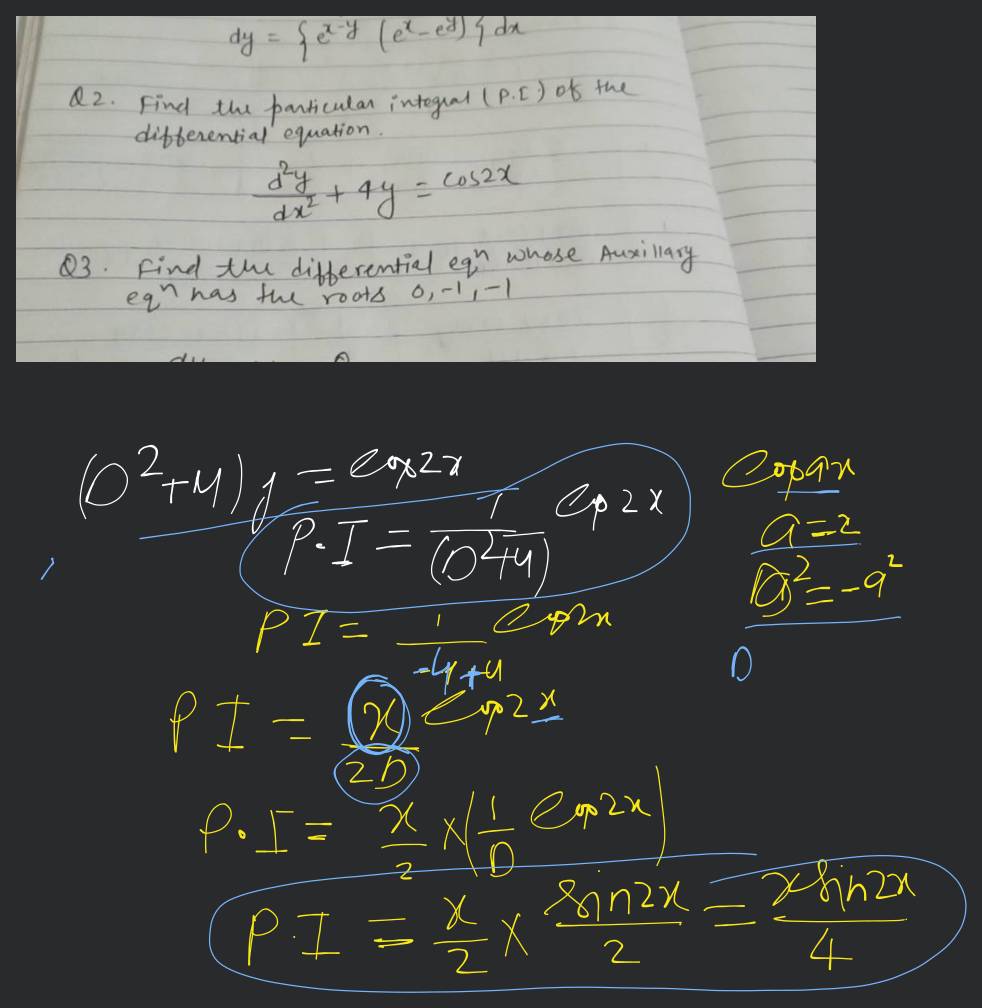 dy = { e^x-y (e^x - e^y) } dx
Q2. Find the particular integral (P.I.) of the
differential equation.
d²y/dx² + 4y = cos2x
Q3. Find the differential eqn whose Auxillary
eqn has the roots 0, -1, -1
(D²+4)y = Cos2x
P.I = 1/(D²+4) Cos2x
Cosax
a=2
D²=-a²
D
PI = 1/-4+4 Cos2x
PI = x/2D Cos2x
P.I = x/2 × (1/D Cos2x)
P.I = x/2 × Sin2x/2 = xSin2x/4